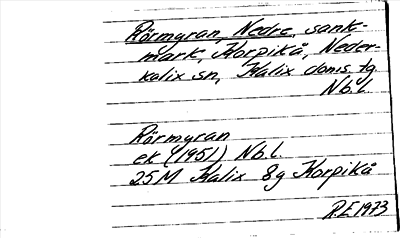 Rörmyran, Nedre, sank-
mark, Korpikå, Neder-
kalix sn, Kalix doms. tg
Nb.l.
Rörmyran
ek (1951) Nb.l.
25M Kalix 8g Korpikå
R.E 1973